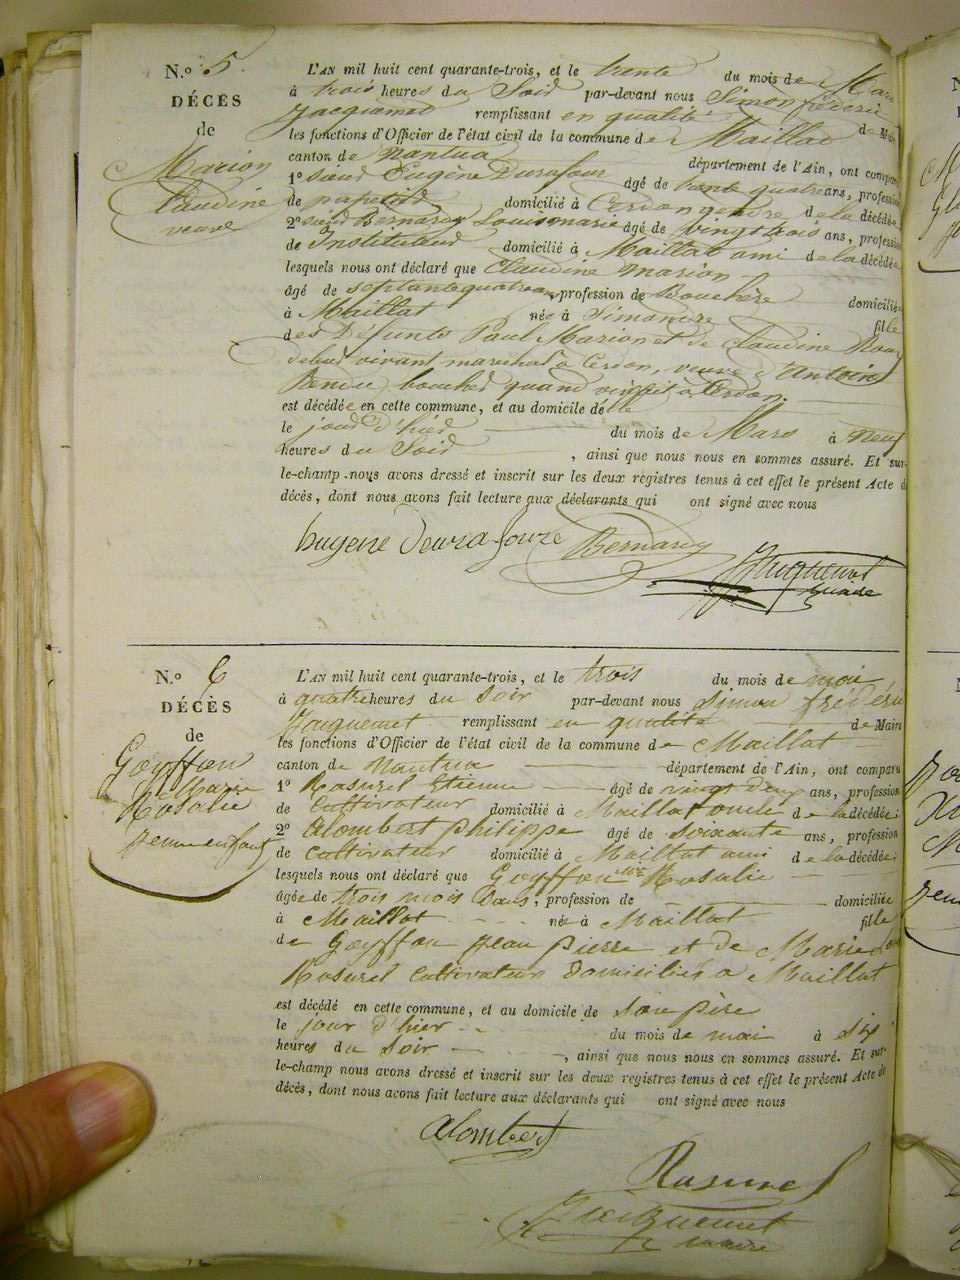 N.º 5.
DÉCÈS
de
Marion
Claudine
veuve
L'AN mil huit cent quarante-trois, et le trente du mois de Mars
à trois heures du Soir par-devant nous Simon fréderic
Jacquemet remplissant en qualité de Mai
les fonctions d'Officier de l'état civil de la commune de Maillat
canton de Nantua département de l'Ain, ont comparu
1º Sieur Eugène Durafour âgé de trente quatre ans, profession
de domicilié à Cerdon gendre de la décédée
2º Sieur Bernard Louis marie âgé de vingt trois ans, profession
de Instituteur domicilié à Maillat ami de la décédée
lesquels nous ont déclaré que Claudine Marion
âgé de septante quatre ans, profession de Bouchère domiciliée
à Maillat née à Simandre fille
des Défunts Paul Marion et de Claudine Roux
de leur vivant marechal à Cerdon, veuve d'Antoine
boucher quand vivait à Cerdon.
est décédée en cette commune, et au domicile d'elle
le jour d'hier du mois de Mars à neuf
heures du Soir, ainsi que nous nous en sommes assuré. Et sur-
le-champ nous avons dressé et inscrit sur les deux registres tenus à cet effet le présent Acte d
décès, dont nous avons fait lecture aux déclarants qui ont signé avec nous
Eugene Durafour Bernard
Jacquemet
maire
N.º 6
DÉCÈS
de
Goyffon
Marie
Rosalie
jeune enfant
L'AN mil huit cent quarante-trois, et le trois du mois de mai
à quatre heures du Soir par-devant nous Simon fréderic
Jacquemet remplissant en qualité de Maire
les fonctions d'Officier de l'état civil de la commune de Maillat
canton de Nantua département de l'Ain, ont comparu
1º Rasurel Etienne âgé de vingt deux ans, profession
de Cultivateur domicilié à Maillat oncle de la décédée
2º Alombert Philippe âgé de soixante ans, profession
de Cultivateur domicilié à Maillat ami de la décédée
lesquels nous ont déclaré que Goyffon Mie Rosalie
âgée de trois mois, profession de domiciliée
à Maillat née à Maillat fille
de Goyffon Jean Pierre et de Marie
Rasurel Cultivateurs domiciliés à Maillat
est décédé en cette commune, et au domicile de son père
le jour d'hier du mois de mai à six
heures du Soir, ainsi que nous nous en sommes assuré. Et sur-
le-champ nous avons dressé et inscrit sur les deux registres tenus à cet effet le présent Acte de
décès, dont nous avons fait lecture aux déclarants qui ont signé avec nous
Alombert
Rasurel
Jacquemet
maire